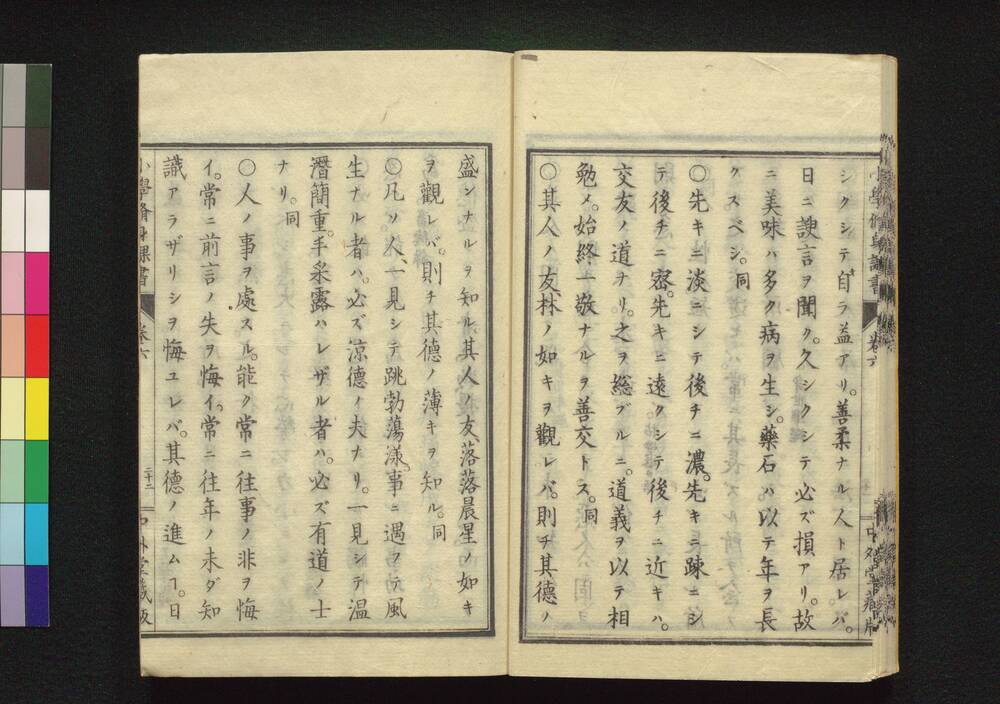 シクシテ自ラ益アリ。善柔ナル人ト居レバ。
日ニ諛言ヲ聞ク。久シクシテ必ズ損アリ。故
ニ美味ハ多ク病ヲ生シ。藥石ハ以テ年ヲ長
クスベシ。同
○先キニ淡ニシテ後チニ濃。先キニ踈ニシ
テ後チニ密。先キニ遠クシテ後チニ近キハ。
交友ノ道ナリ。之ヲ総ブルニ。道義ヲ以テ相
勉メ。始終一敬ナルヲ善交トス。同
○其人ノ友。林ノ如キヲ觀レバ。則チ其德ノ
盛ンナルヲ知ル。其人ノ友。落落晨星ノ如キ
ヲ觀レバ。則チ其德ノ薄キヲ知ル。同
○凡ソ人。一見シテ跳勃蕩漾。事ニ遇フテ風
生ナル者ハ。必ズ涼德ノ夫ナリ。一見シテ温
潛簡重。手采露ハレザル者ハ。必ズ有道ノ士
ナリ。同
○人ノ事ヲ處スル。能ク常ニ往事ノ非ヲ悔
イ。常ニ前言ノ失ヲ悔イ。常ニ往年ノ未ダ知
識アラザリシヲ悔ユレバ。其德ノ進ムヿ。日
小學脩身課書 卷六 二十二 中外堂藏版